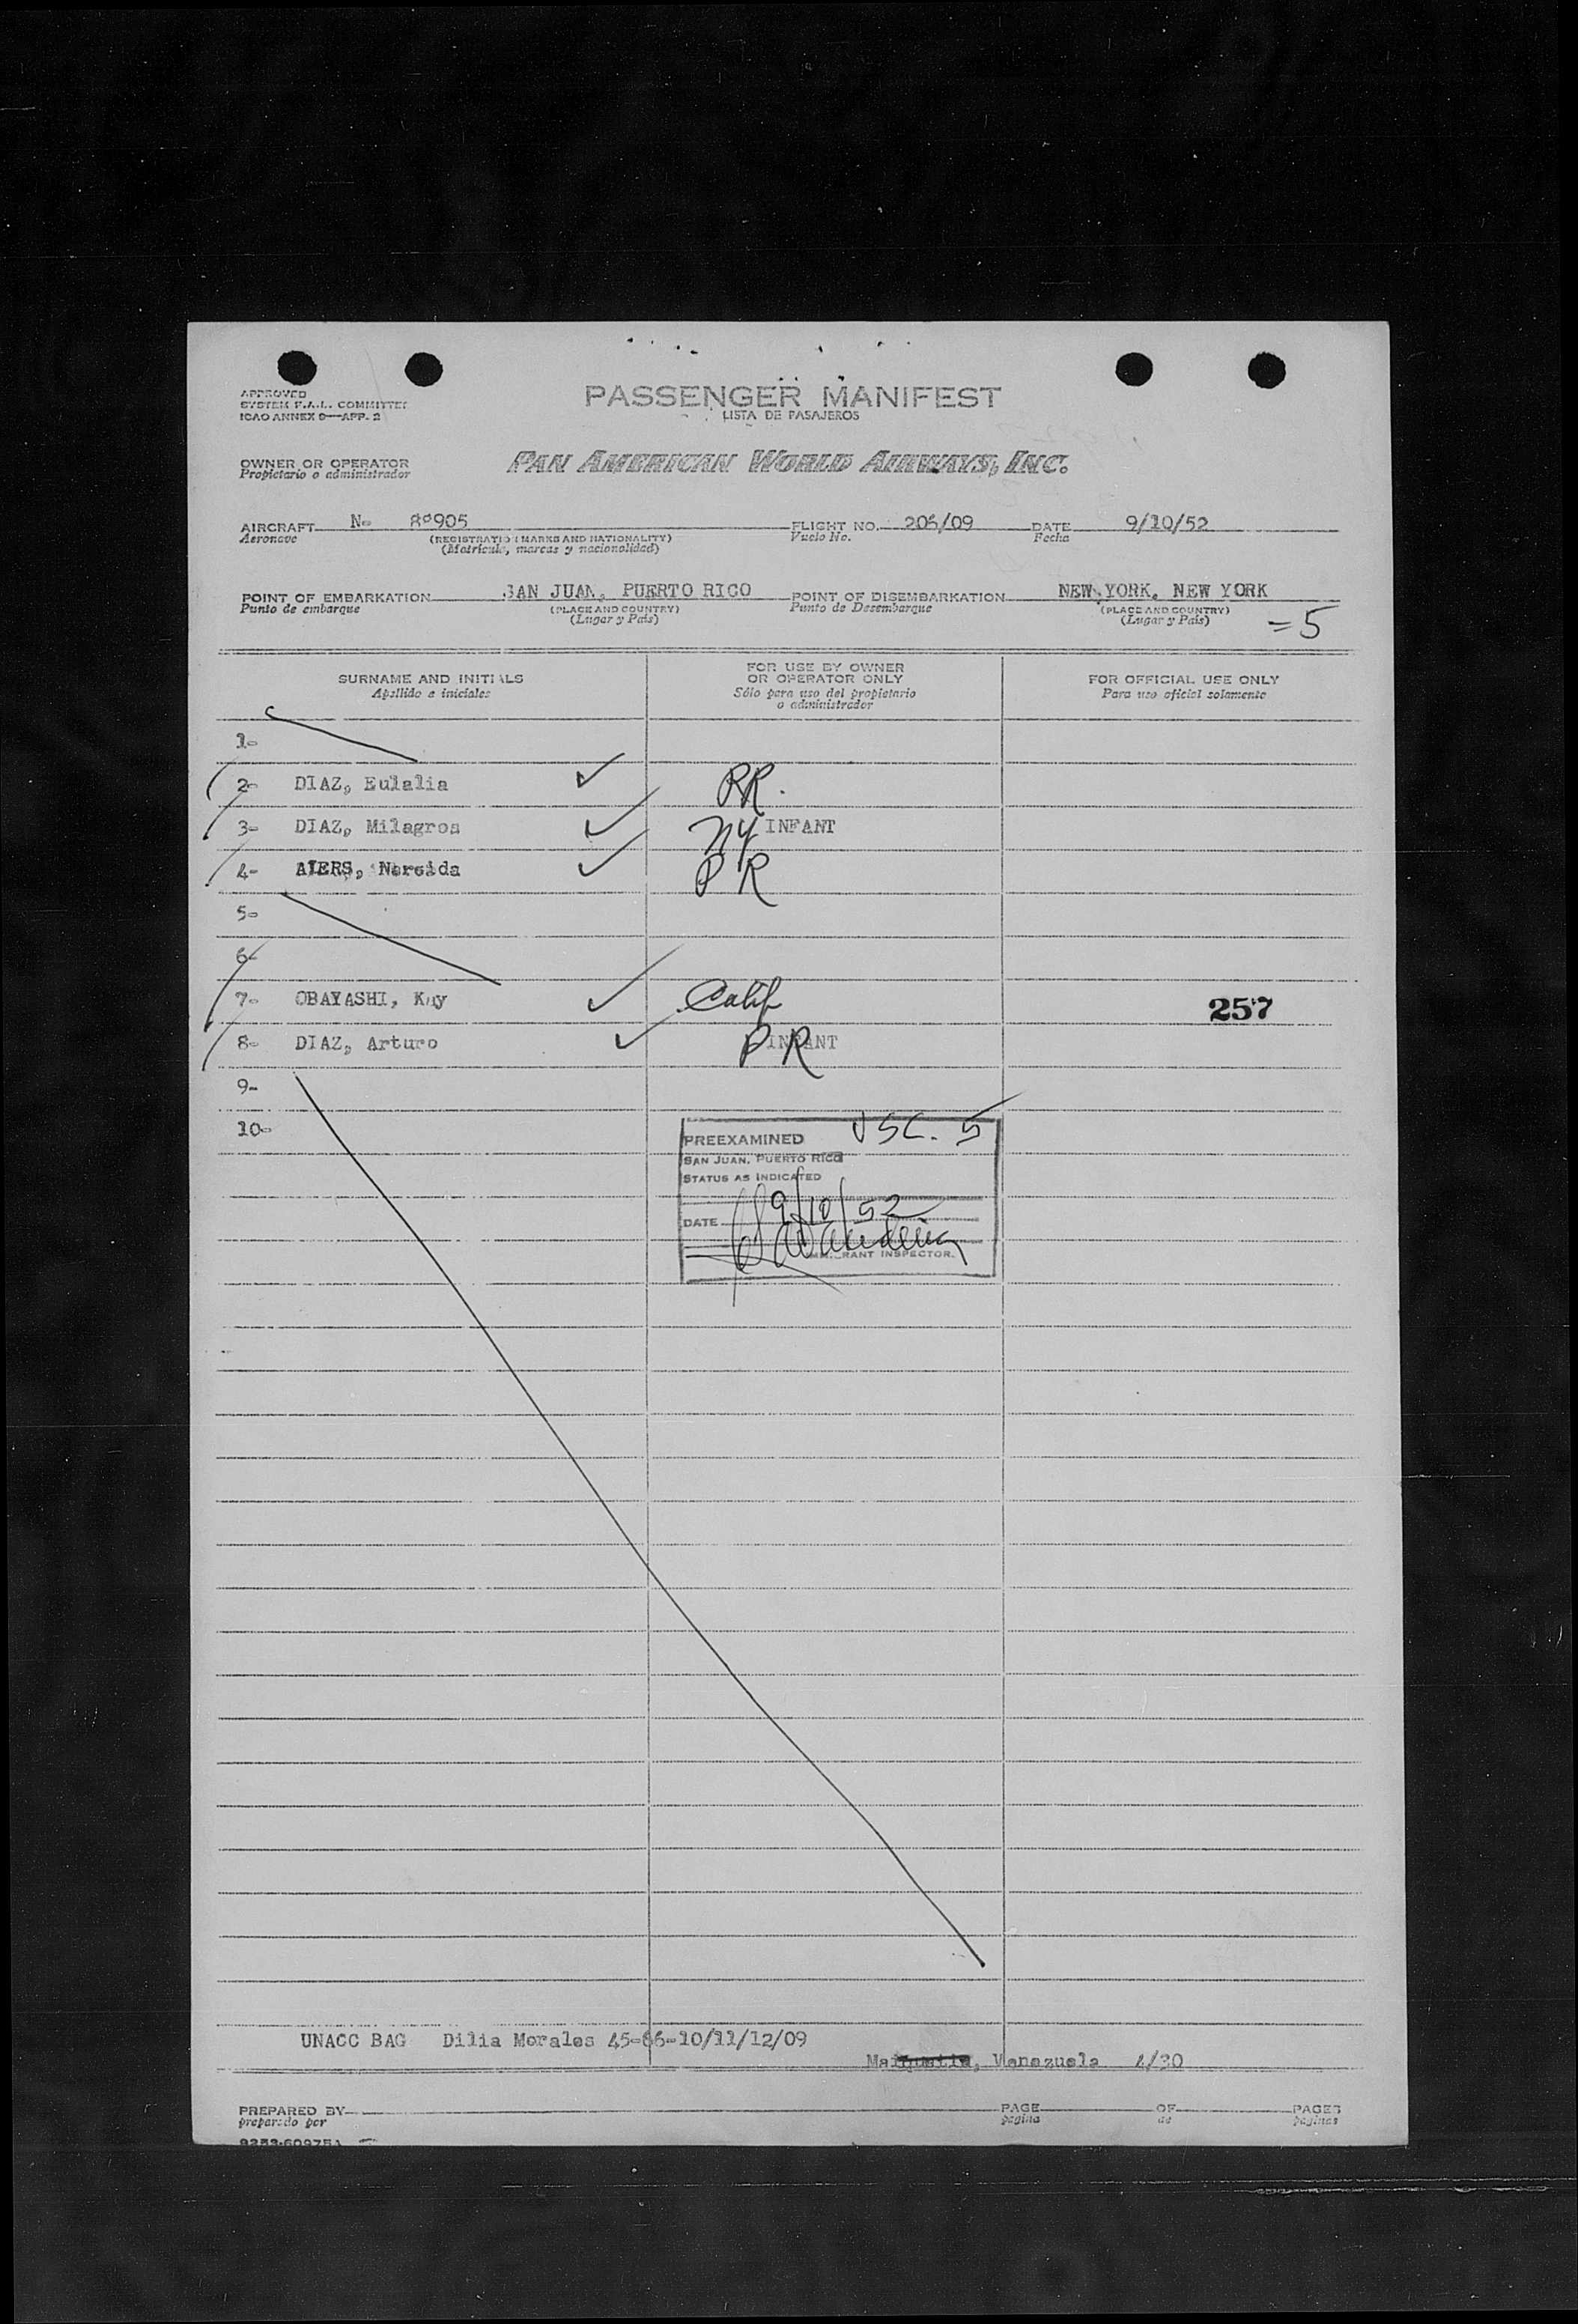 APPROVED
SYSTEM F.A.L. COMMITTEE
ICAO ANNEX 9—APP. 2
PASSENGER MANIFEST
LISTA DE PASAJEROS
OWNER OR OPERATOR
Propietario o administrador
PAN AMERICAN WORLD AIRWAYS, INC.
AIRCRAFT N- 88905 FLIGHT NO. 206/09 DATE 9/10/52
Aeronave (REGISTRATION MARKS AND NATIONALITY) Vuelo No. Fecha
(Matricula, marcas y nacionalidad)
POINT OF EMBARKATION SAN JUAN, PUERTO RICO POINT OF DISEMBARKATION NEW YORK, NEW YORK
Punto de embarque (PLACE AND COUNTRY) Punto de Desembarque (PLACE AND COUNTRY)
(Lugar y País) (Lugar y País) =5
SURNAME AND INITIALS FOR USE BY OWNER OR OPERATOR ONLY FOR OFFICIAL USE ONLY
Apellido e iniciales Sólo para uso del propietario o administrador Para uso oficial solamente
1-
2- DIAZ, Eulalia PR.
3- DIAZ, Milagros NY INFANT
4- Nereida PR
5-
6-
7- OBAYASHI, Kay Calif 257
8- DIAZ, Arturo INFANT PR
9-
10-
PREEXAMINED USC. 5
SAN JUAN, PUERTO RICO
STATUS AS INDICATED
DATE 9/10/52
IMMIGRANT INSPECTOR
UNACC BAG Dilia Morales 45-66-10/11/12/09
Venezuela 4/30
PREPARED BY PAGE OF PAGES
preparado por pagina de paginas